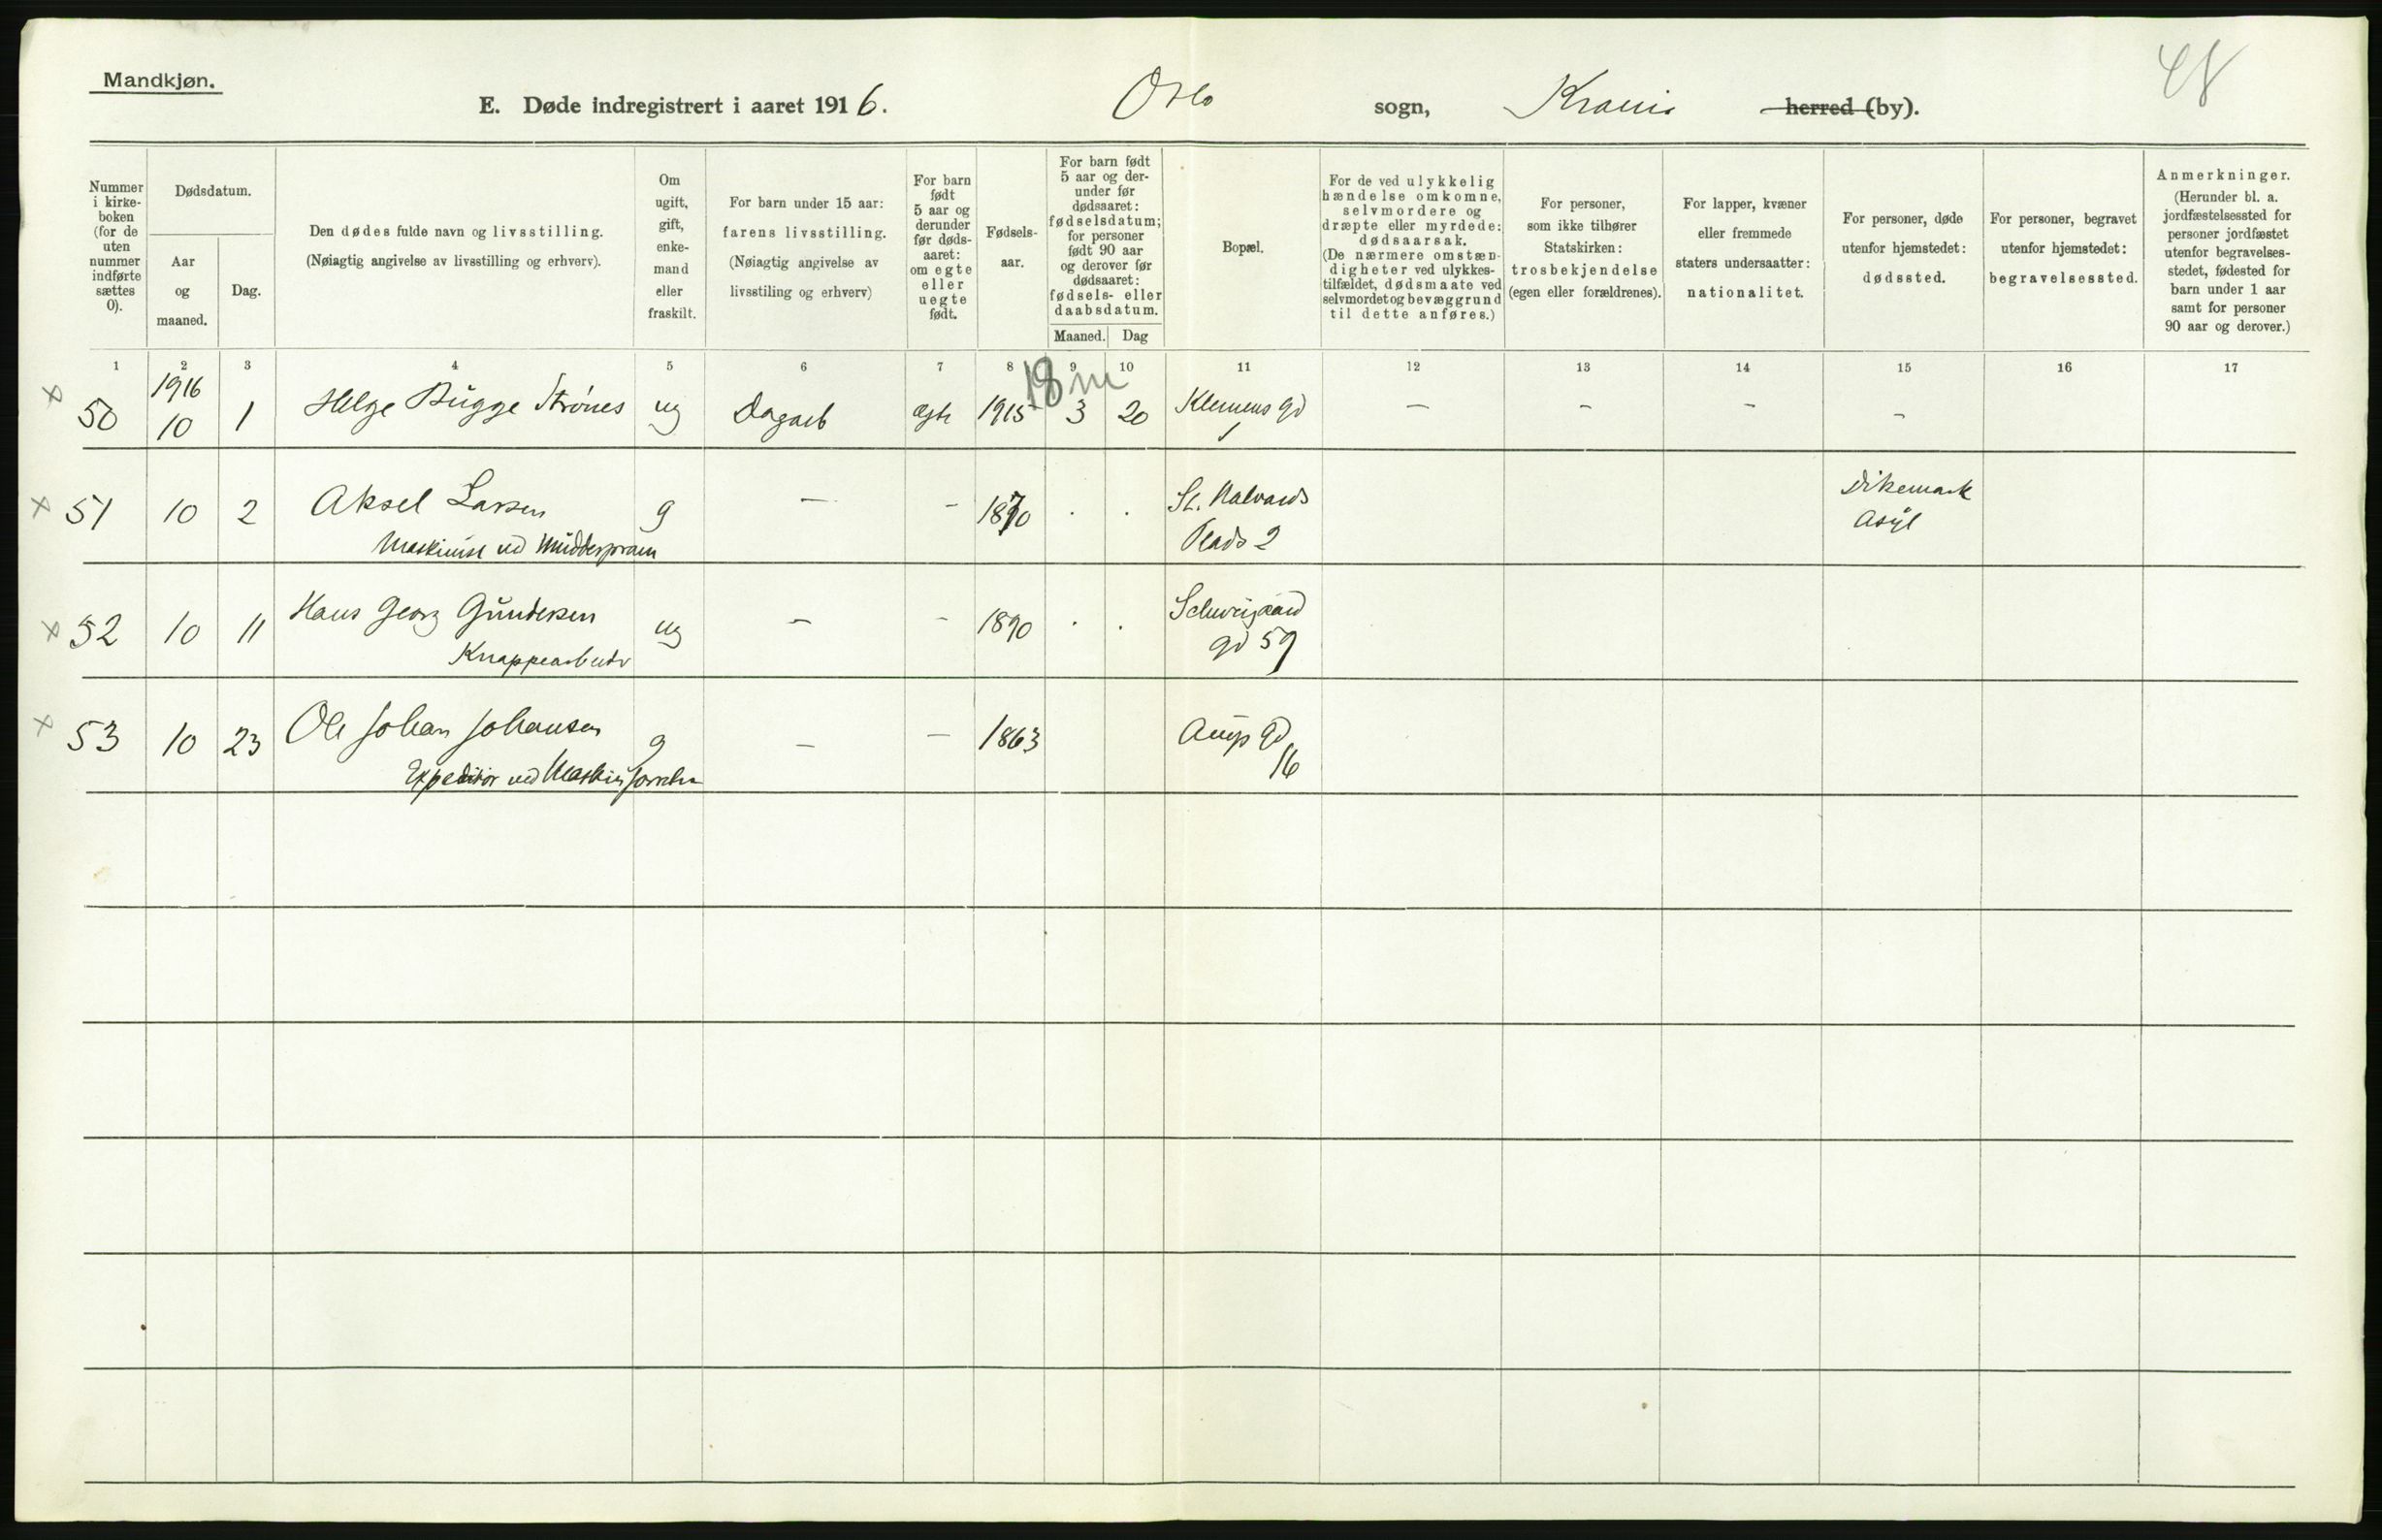 Mandkjøn.
48
E. Døde indregistrert i aaret 1916. Oslo sogn, Krania herred (by).
Nummer i kirke-boken (for de uten nummer indførte sættes 0).
Dødsdatum.
Aar og maaned.
Dag.
Den dødes fulde navn og livsstilling.
(Nøiagtig angivelse av livsstilling og erhverv).
Om ugift, gift, enke-mand eller fraskilt.
For barn under 15 aar:
farens livsstilling.
(Nøiagtig angivelse av
livsstiling og erhverv)
For barn født 5 aar og derunder før døds-aaret: om egte eller uegte født.
Fødsels-aar.
For barn født 5 aar og der-under før dødsaaret: fødselsdatum; for personer født 90 aar og derover før dødsaaret: fødsels- eller daabsdatum.
Maaned. Dag
Bopæl.
For de ved ulykkelig
hændelse omkomne,
selvmordere og
dræpte eller myrdede:
dødsaarsak.
(De nærmere omstæn-
digheter ved ulykkes-
tilfældet, dødsmaate ved
selvmordet og bevæggrund
til dette anføres.)
For personer,
som ikke tilhører
Statskirken:
trosbekjendelse
(egen eller forældrenes).
For lapper, kvæner
eller fremmede
staters undersaatter:
nationalitet.
For personer, døde
utenfor hjemstedet:
dødssted.
For personer, begravet
utenfor hjemstedet:
begravelsessted.
Anmerkninger.
(Herunder bl. a.
jordfæstelsessted for
personer jordfæstet
utenfor begravelses-
stedet, fødested for
barn under 1 aar
samt for personer
90 aar og derover.)
1 2 3 4 5 6 7 8 9 10 11 12 13 14 15 16 17
1916
18 m
× 50 10 1 Helge Bugge Strönes ug Dagarb ægte 1915 3 20 Klemens gd 1 — — — —
× 51 10 2 Aksel Larsen g — — 1870 . . St. Halvards Dikemark
Maskinist ved Mudderpram Plads 2 Asyl
× 52 10 11 Hans Georg Gundersen ug — — 1890 . . Schweigaard
Knappearbeider gd 59
× 53 10 23 Ole Johan Johansen g — — 1863 gd
Expeditör ved Maskin 16